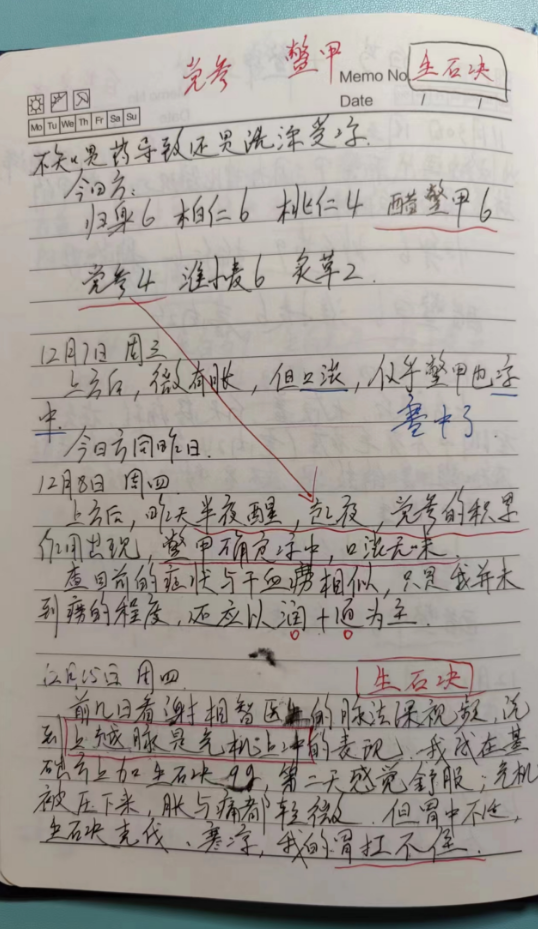 党参 鳖甲
Memo No. 生石决
Date / /
Mo Tu We Th Fr Sa Su
不知是药导致还是洗澡受凉.
今日方:
归身6 柏仁6 桃仁4 醋鳖甲6
党参4 淮小麦6 炙草2.
12月7日 周三
上方后, 微有胀, 但口淡, 似乎鳖甲也凉
中. 寒中了.
今日方同昨日.
12月8日 周四.
上方后, 昨天半夜醒, 起夜, 党参的积累
作用出现, 鳖甲确克凉中, 口淡无味.
查目前的症状与干血痨相似, 只是我并未
到痨的程度, 还应以润+通为主.
12月15日 周四. 生石决
前几日看谢相智医生的脉法课视频, 说
到上越脉是气机上冲的表现. 我试在基
础方上加生石决9g, 第二天感觉舒服; 气机
被压下来, 胀与痛都轻微. 但胃中不适,
生石决克伐、寒凉, 我的胃扛不住.